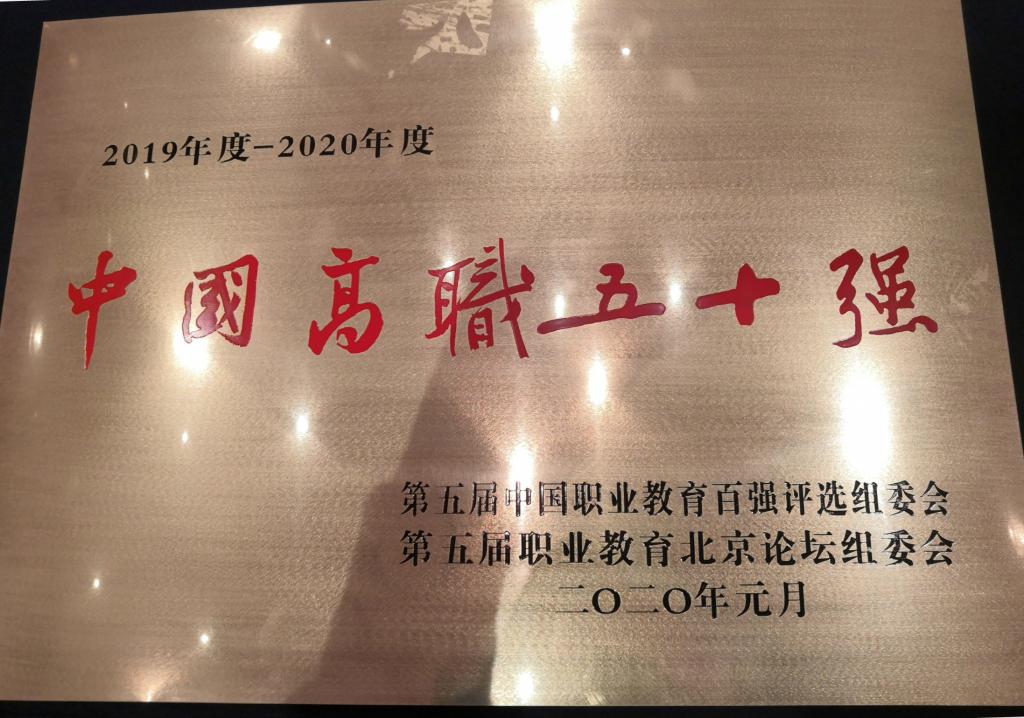 2019年度-2020年度
中國高職五十强
第五届中国职业教育百强评选组委会
第五届职业教育北京论坛组委会
二〇二〇年元月